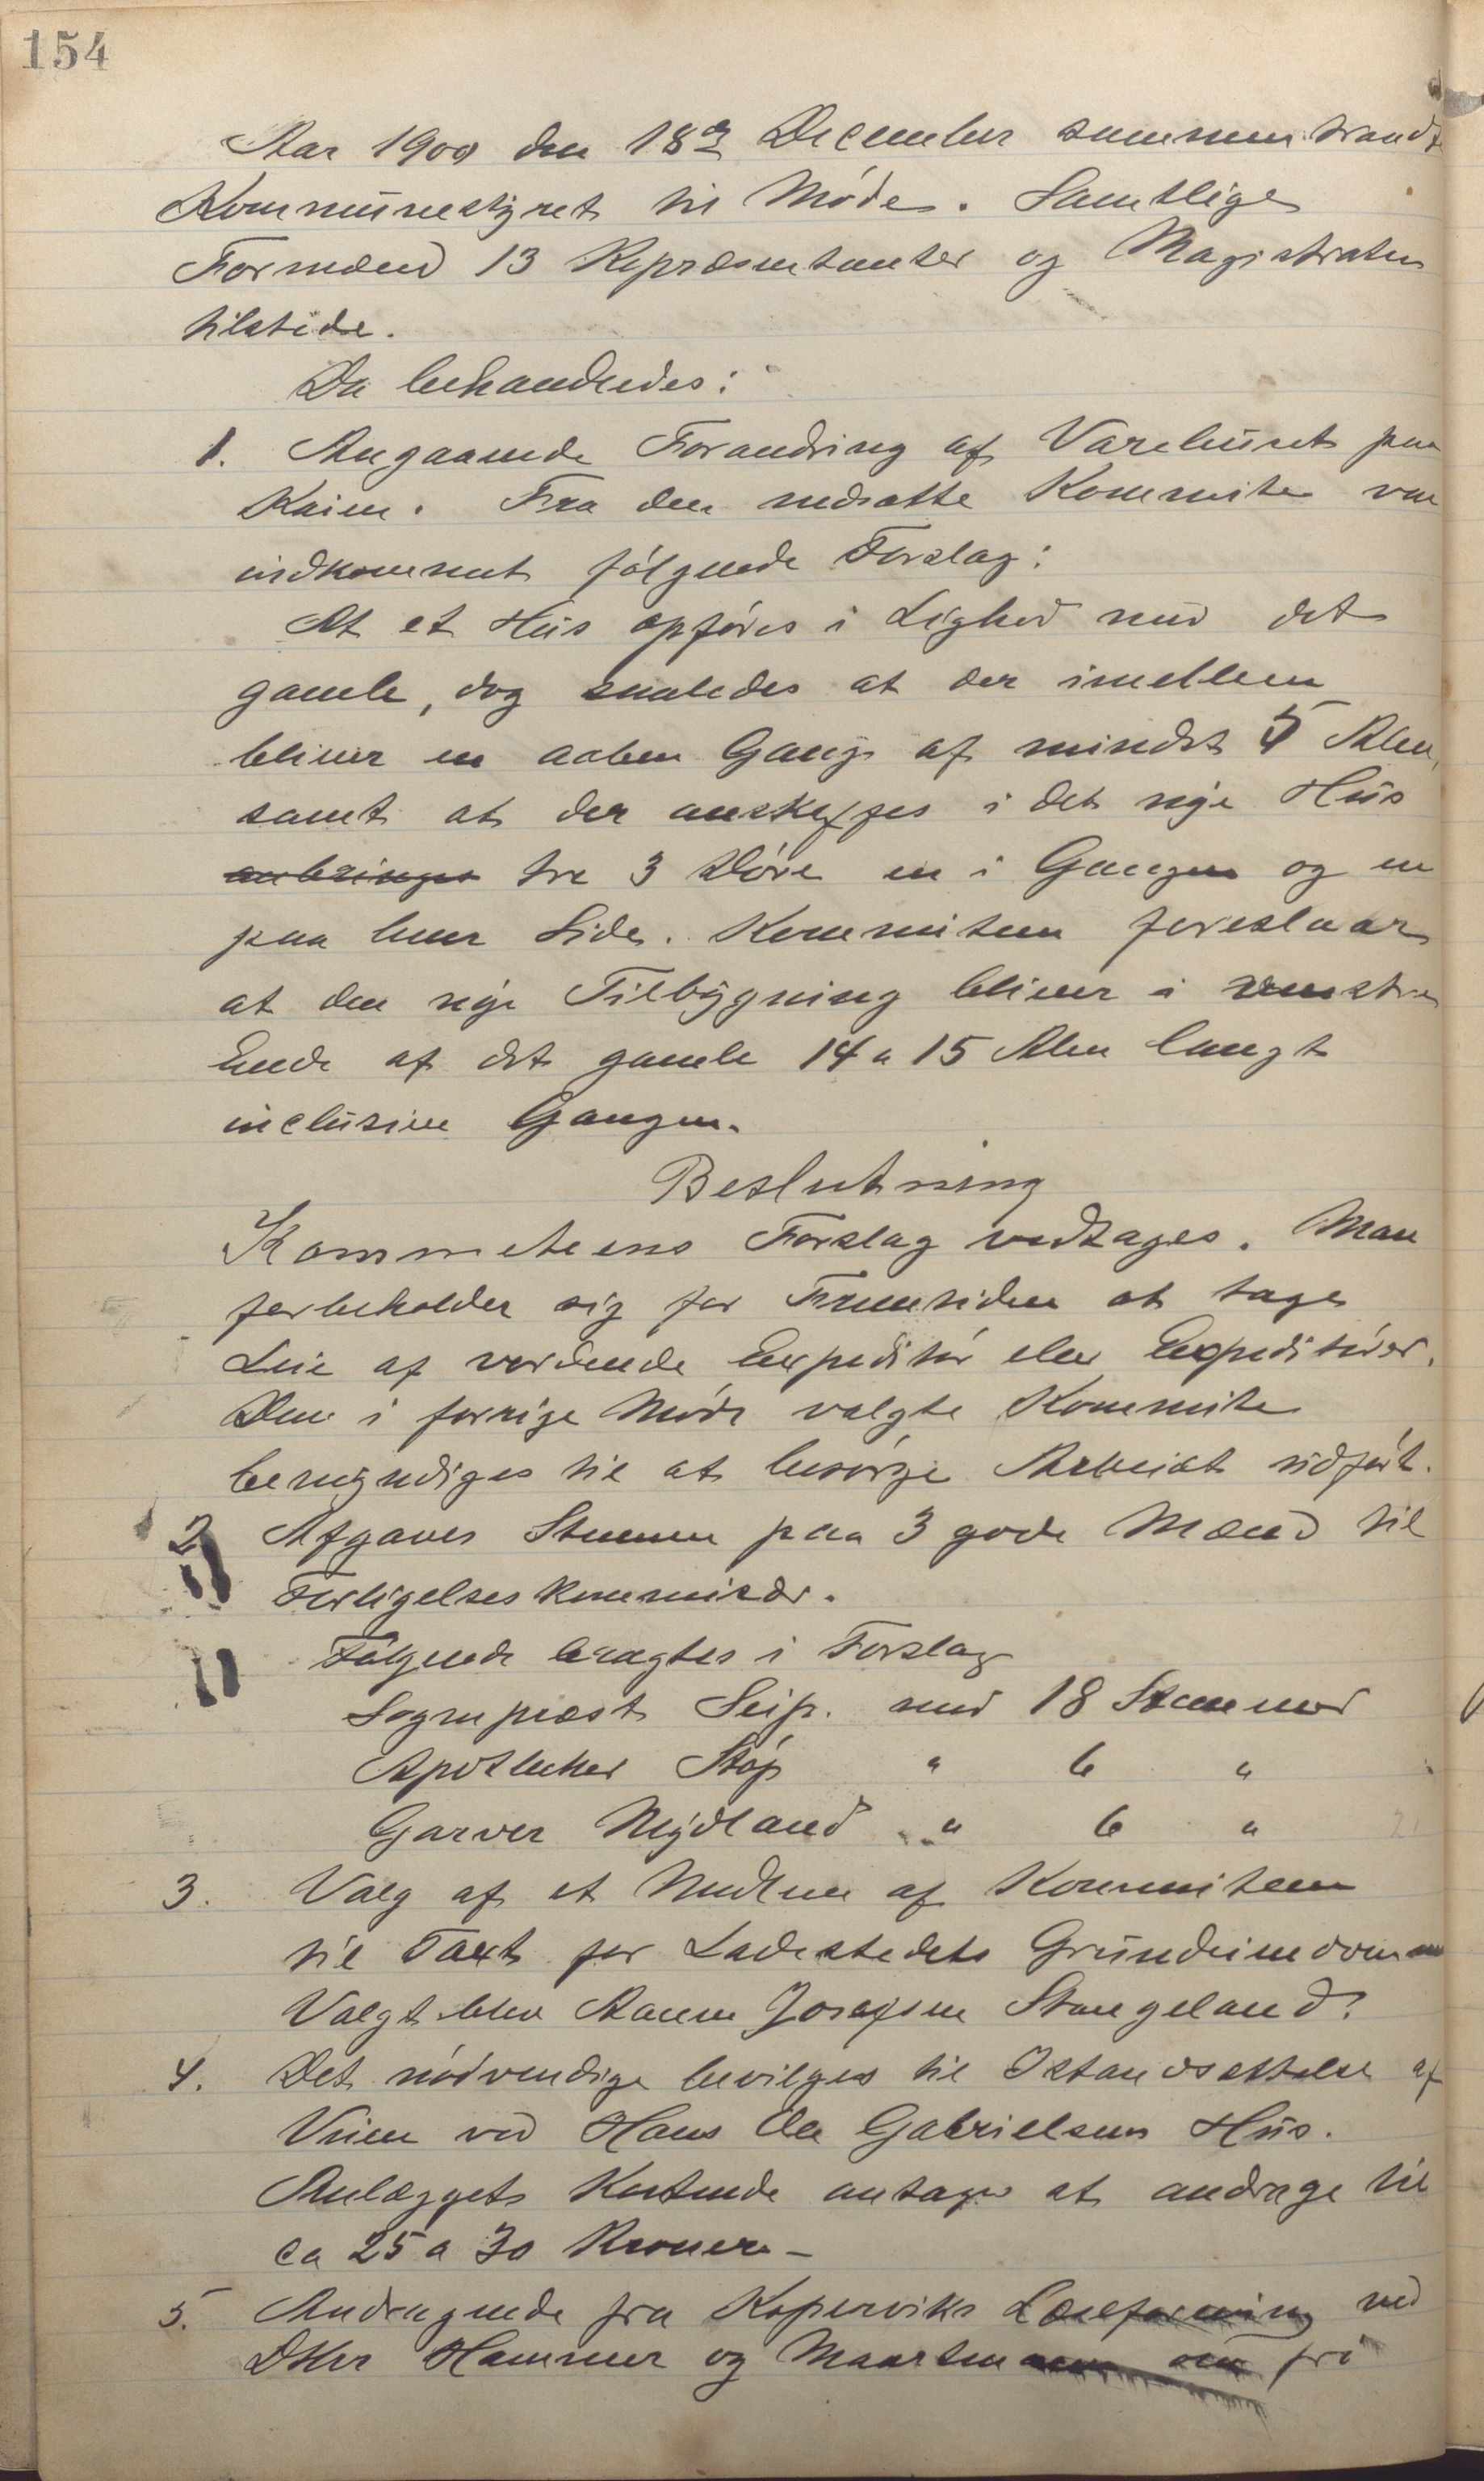 154
Aar 1900 den 18de December sammentraadte
Kommunestyret til Møde. Samtlige
Formænd 13 Repræsentanter og Magistraten
tilstede.
Da behandledes:
1. Angaaende Forandring af Varehuset paa
Kaien. Fra den nedsatte Kommite var
indkommet følgende Forslag:
At et Hus opføres i Lighed med det
gamle, dog saaledes at der imellem
bliver en aaben Gang af mindst 5 Alen,
samt at der anskaffes i det nye Hus
anbringes tre 3 Døre en i Gangen og en
paa hver Side. Kommiteen foreslaar
at den nye Tilbygning bliver i venstre
Ende af det gamle 14 a 15 Alen langt
inclusive Gangen.
Beslutning
Kommeteens Forslag vedtages. Man
forbeholder sig for Fremtiden at tage
Leie af vordende Expeditør eller Expeditører.
Den i forrige Møde valgte Kommite
bemyndiges til at besørge Arbeidet udført.
2 Afgaves Stemmer paa 3 gode Mænd til
Forligelseskommisær.
Følgende bragtes i Forslag
Sognepræst Seip. med 18 Stemmer
Apotheker Støp " 6 "
Garver Nydland " 6 "
3. Valg af et Medlem af Kommiteen
til Taxt for Ladestedets Grundeiendomme
Valgt blev Aanen Josefsen Stangeland.
4. Det nødvendige bevilges til Istandsættelse af
Veien ved Hans Ole Gabrielsens Hus.
Anlæggets Kostende antages at andrage til
ca 25 a 30 Kroner –
5. Andragende fra Koperviks Læseforening ved
DHrr Hammer og Maartmann om fri